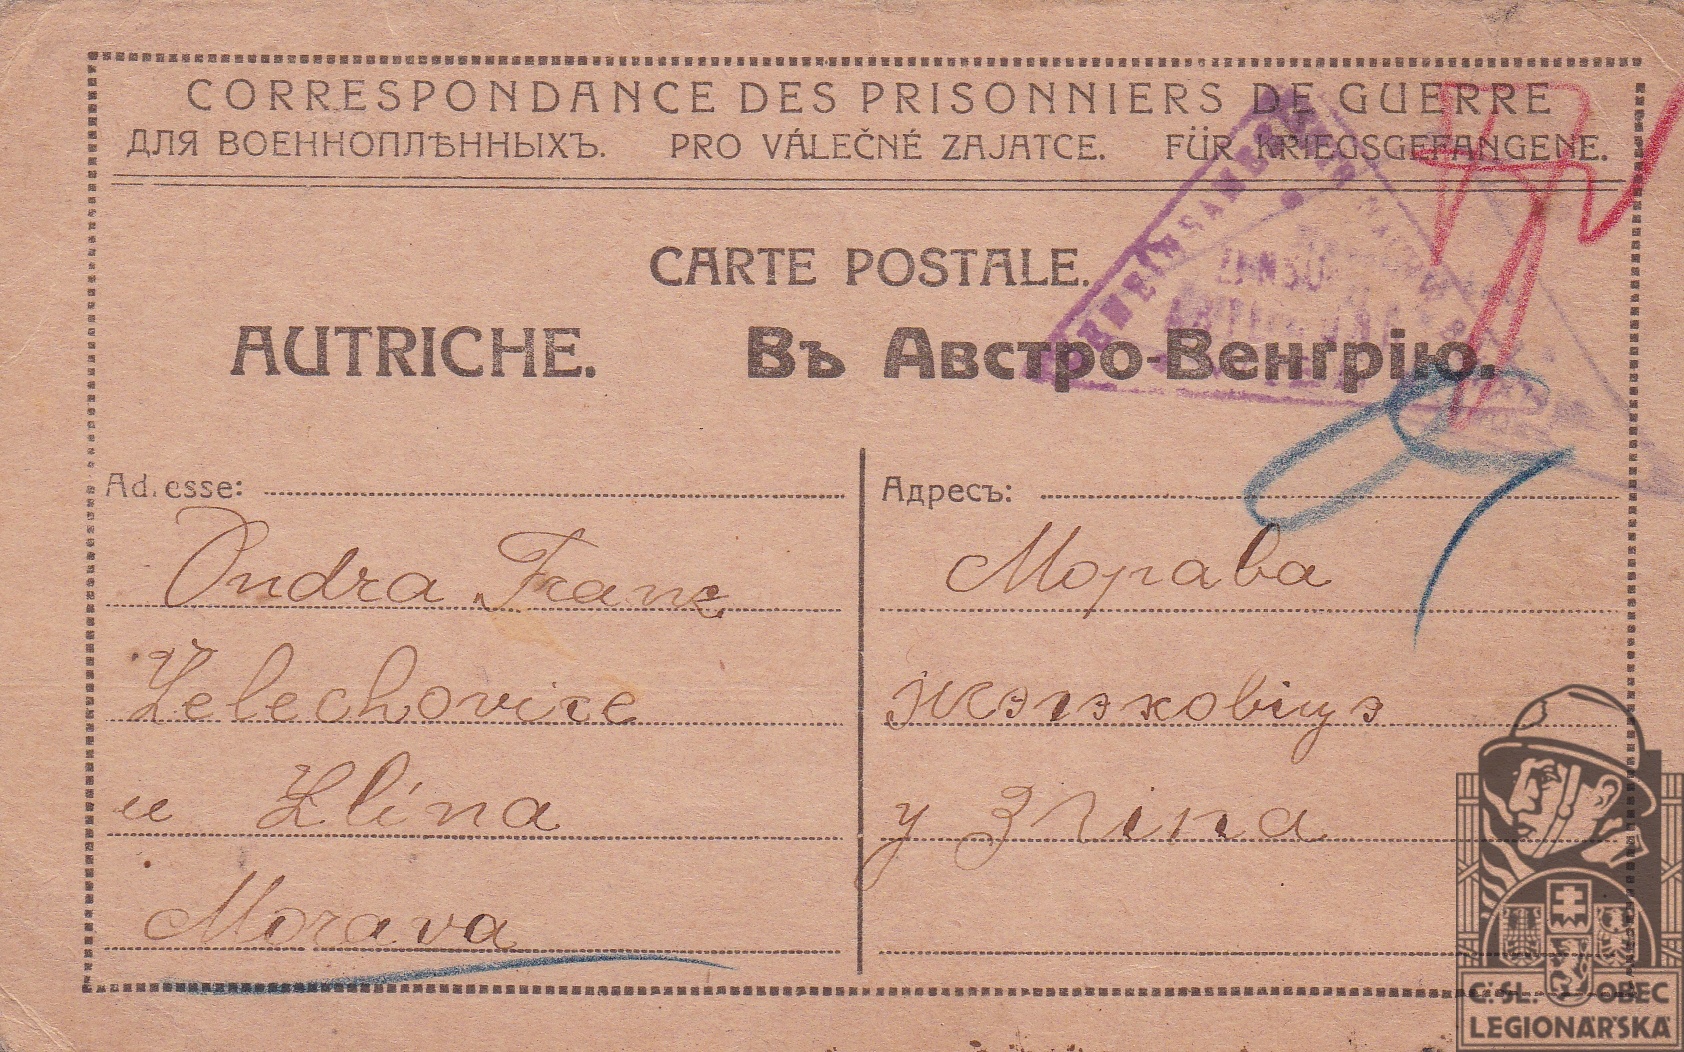 CORRESPONDANCE DES PRISONNIERS DE GUERRE
ДЛЯ ВОЕННОПЛѢННЫХЪ. PRO VÁLEČNÉ ZAJATCE. FÜR KRIEGSGEFANGENE.
CARTE POSTALE.
AUTRICHE. Въ Австро-Венгрію.
Ad. esse:
Ondra Franc
Želechovice
u Zlína
Morava
Адресъ:
Морава
Жэлэховіцэ
у Зліна
GEMEINSAMES
ZENSUR
Č. SL. OBEC
LEGIONÁŘSKÁ